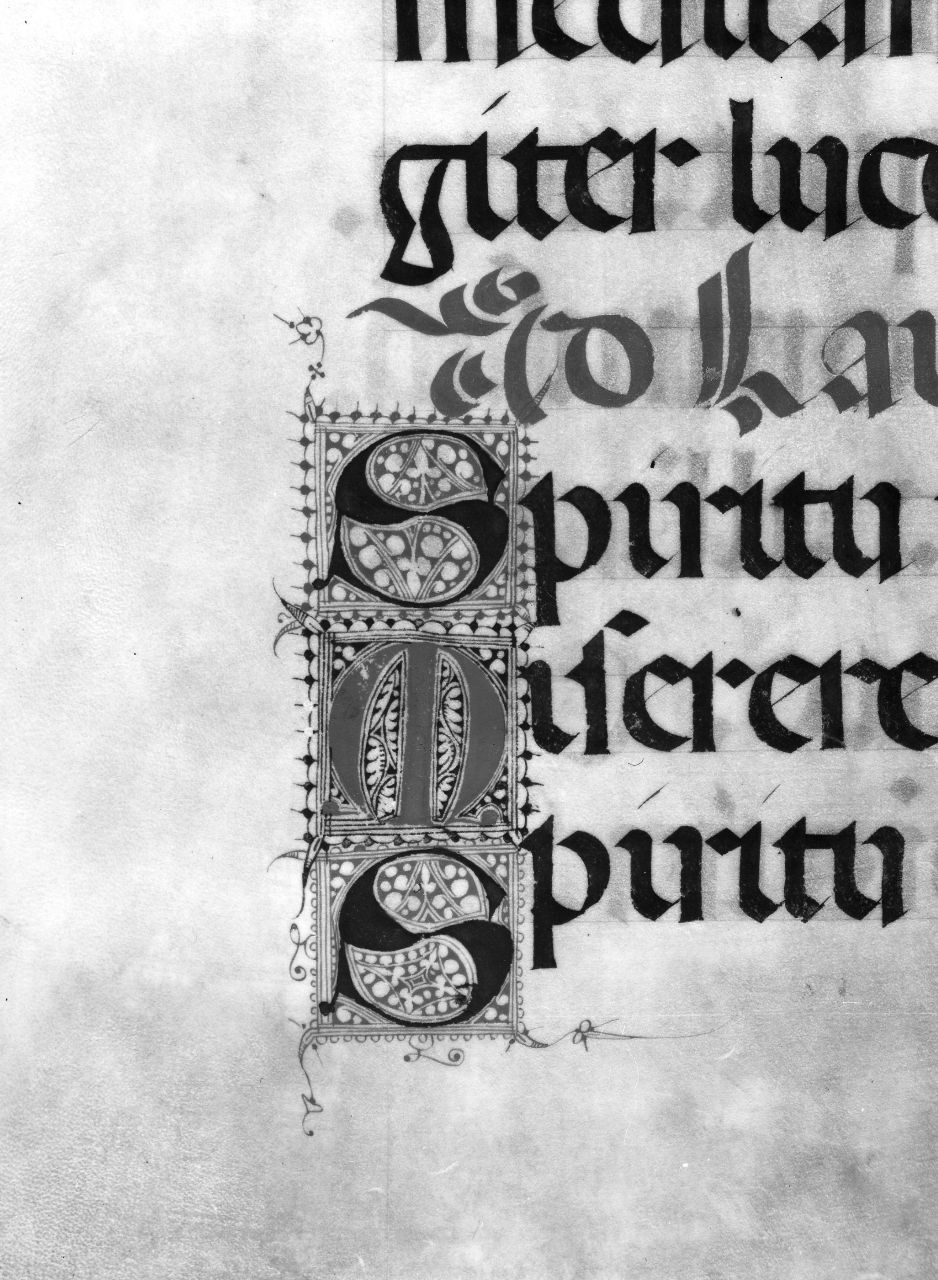 giter
Ad Lau
Spiritu
Miserere
Spiritu